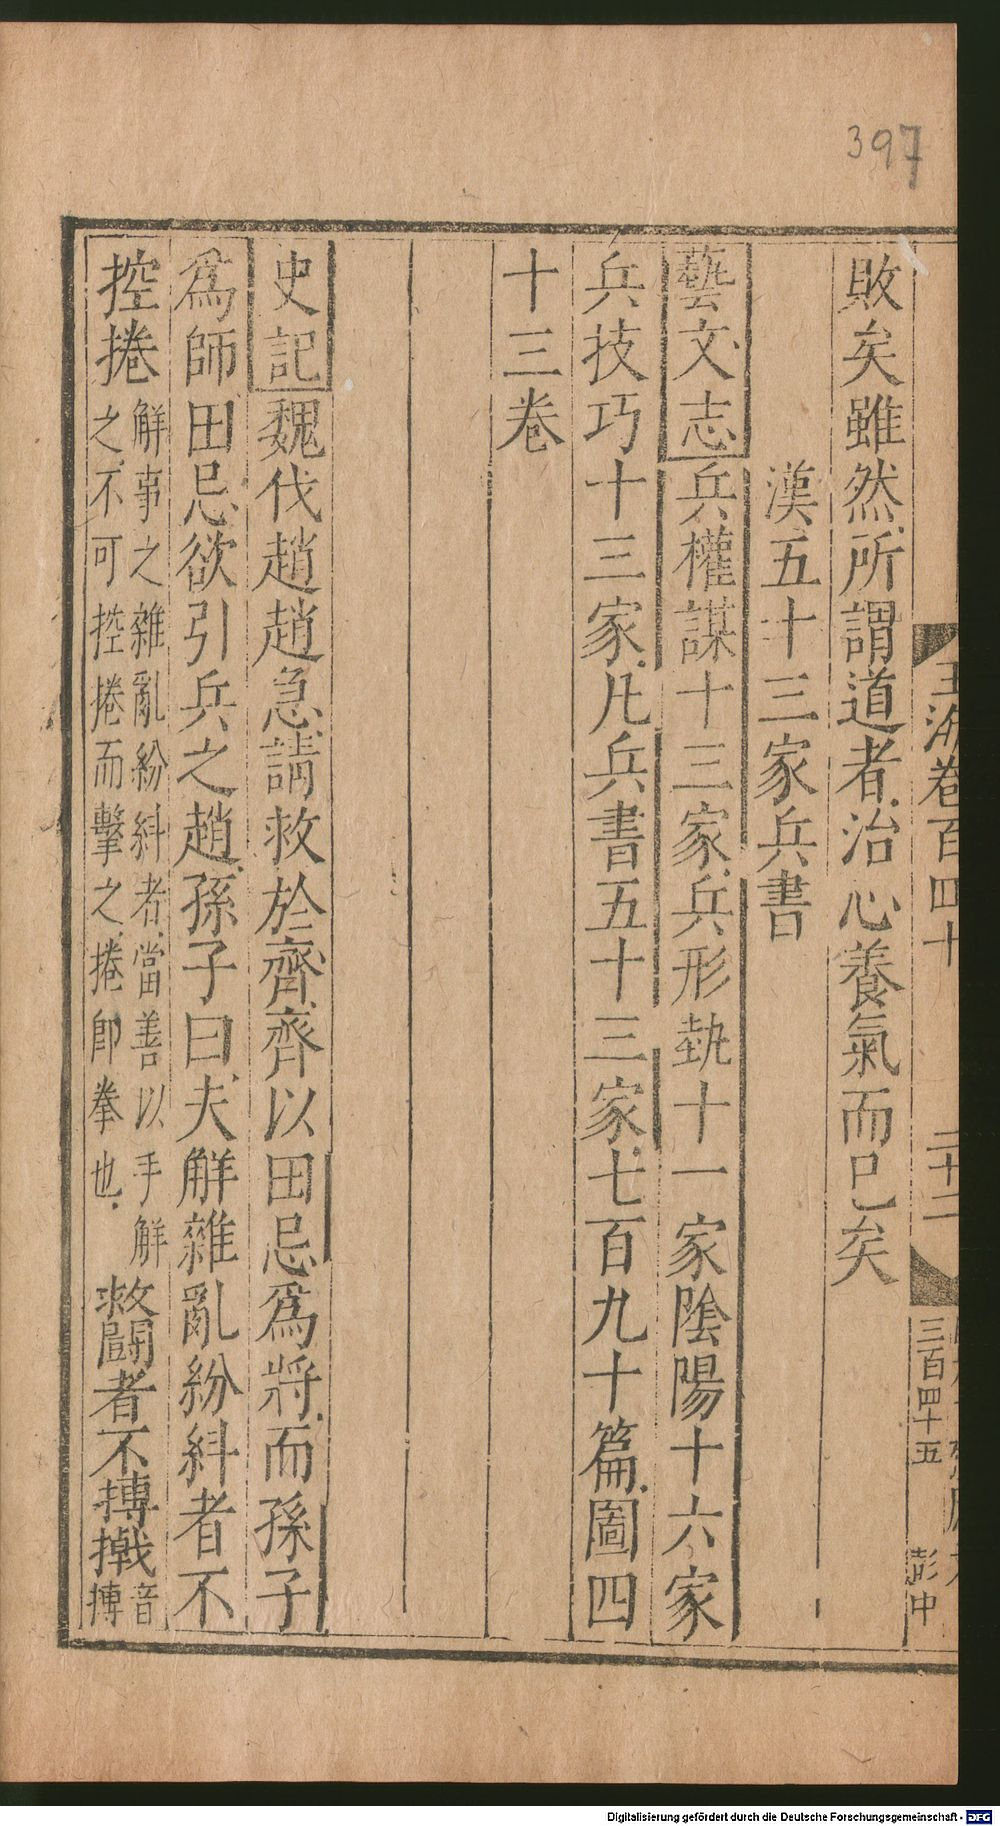 397
玉海卷百四十
二十二
三百四十五
彭中
敗矣雖然所謂道者治心養氣而已矣
漢五十三家兵書
藝文志兵權謀十三家兵形埶十一家陰陽十六家
兵技巧十三家凡兵書五十三家七百九十篇圖四
十三卷
史記魏伐趙趙急請救於齊齊以田忌爲將而孫子
爲師田忌欲引兵之趙孫子曰夫解雜亂紛糾者不
控捲解事之雜亂紛糾者當善以手解之不可控捲而擊之捲即拳也救鬭者不搏撠音搏
Digitalisierung gefördert durch die Deutsche Forschungsgemeinschaft - DFG